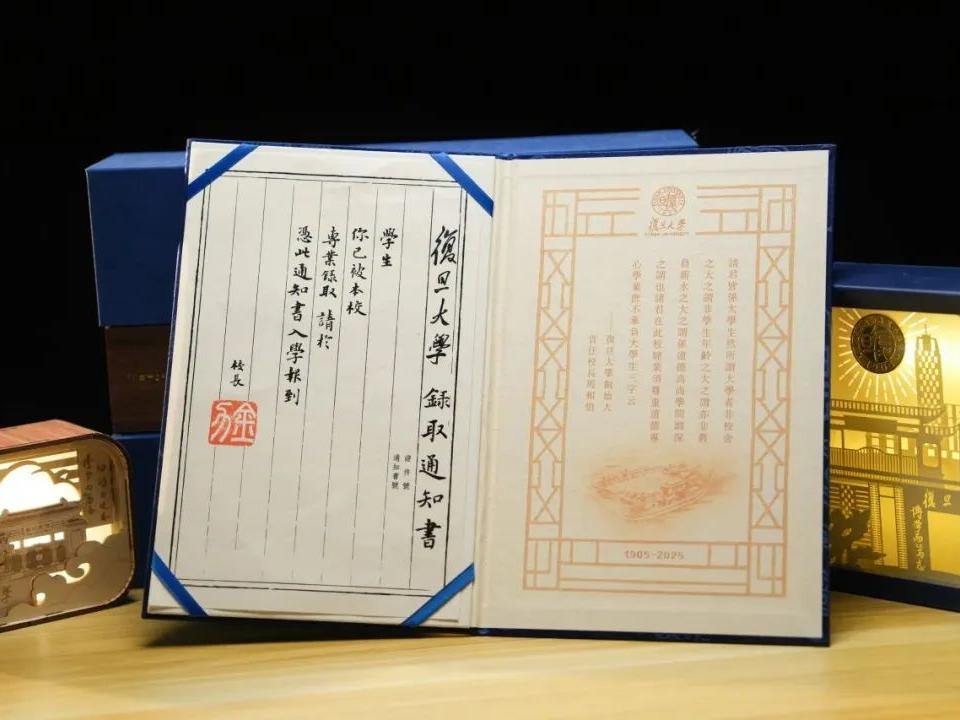 復旦大學 錄取通知書
證件號
通知書號
學生
你已被本校
專業錄取 請於
憑此通知書入學報到
校長
復旦大學
諸君皆係大學生然所謂大學者非校舍
之大之謂非學生年齡之大之謂亦非教
員薪水之大之謂係道德高尚學問淵深
之謂也諸君在此校肄業須尊重道德專
心學業庶不辜負大學生三字云
——復旦大學創始人
首任校長馬相伯
1905-2025
復旦
博學而篤志